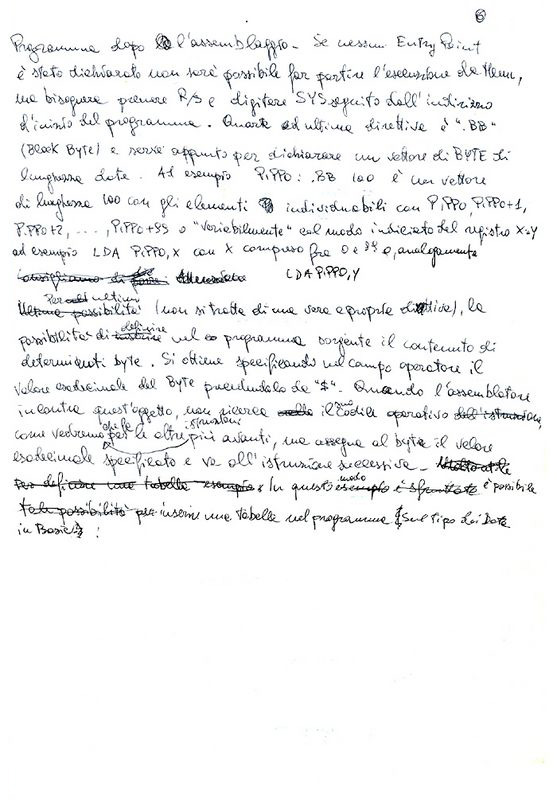 6
Programma dopo l'assemblaggio. Se nessun Entry Point
è stato dichiarato non sarà possibile far partire l'esecuzione da Menu,
ma bisognerà premere R/S e digitare SYS seguito dall'indirizzo
d'inizio del programma. Quarta ed ultima direttiva è ".BB"
(Block Byte) e serve appunto per dichiarare un vettore di BYTE di
lunghezza data. Ad esempio PIPPO: .BB 100 è un vettore
di lunghezza 100 con gli elementi individuabili con PIPPO, PIPPO+1,
PIPPO+2, ..., PIPPO+99 o "variabilmente" col modo indiciato del registro X o Y
ad esempio LDA PIPPO,X con X compreso fra 0 e 99 o, analogamente
Consigliamo di LDA PIPPO,Y
Per ultima
Ultima possibilità (non si tratta di una vera e propria direttiva), la
possibilità di definire nel programma sorgente il contenuto di
determinati byte. Si ottiene specificando nel campo operatore il
valore esadecimale del Byte preceduto da "$". Quando l'assemblatore
incontra quest'oggetto, non ricerca il suo codice operativo dell'istruzione,
come vedremo per le altre istruzioni più avanti, ma assegna al byte il valore
esadecimale specificato e va all'istruzione successiva.
Per definire una tabella esempio In questo modo esempio è sfruttata è possibile
Tale possibilità per inserire una tabella nel programma (Sul tipo dei Data
in Basic) !